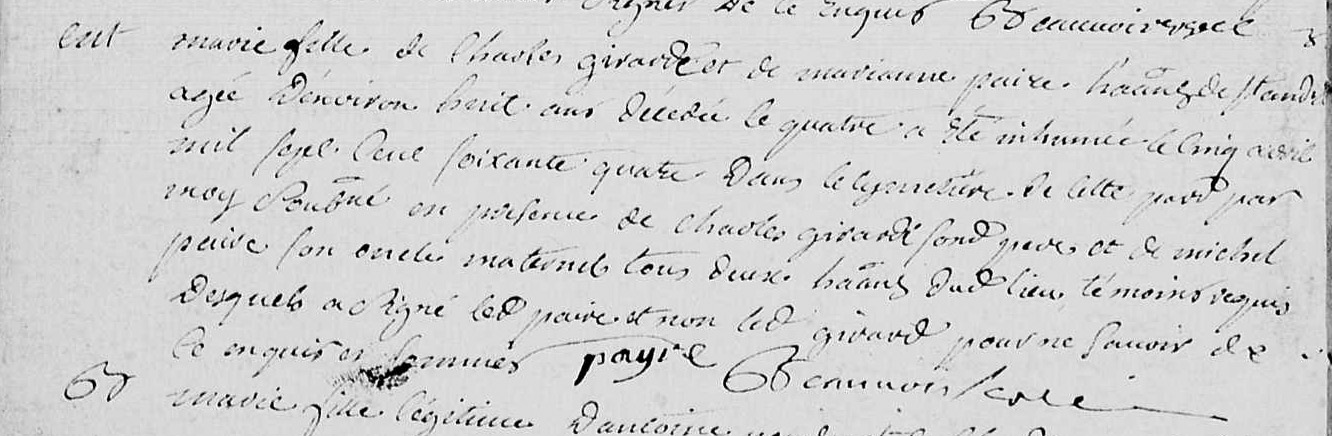 signer de ce enquis Beauvoir
ent marie fille de Charles girard et de marianne paire hãants de St andré
agée d'environ huit ans décédée le quatre a été inhumée le cinq avril
mil sept cent soixante quatre dans le cymetière de cette parr par
moy soussé en presence de Charles girard sond pere et de michel
paire son oncle maternel tous deux hãants dud lieu témoins requis
desquels a signé led paire et non led girard pour ne savoir de
ce enquis et sommés payre Beauvoir curé
B marie fille légitime d'antoine